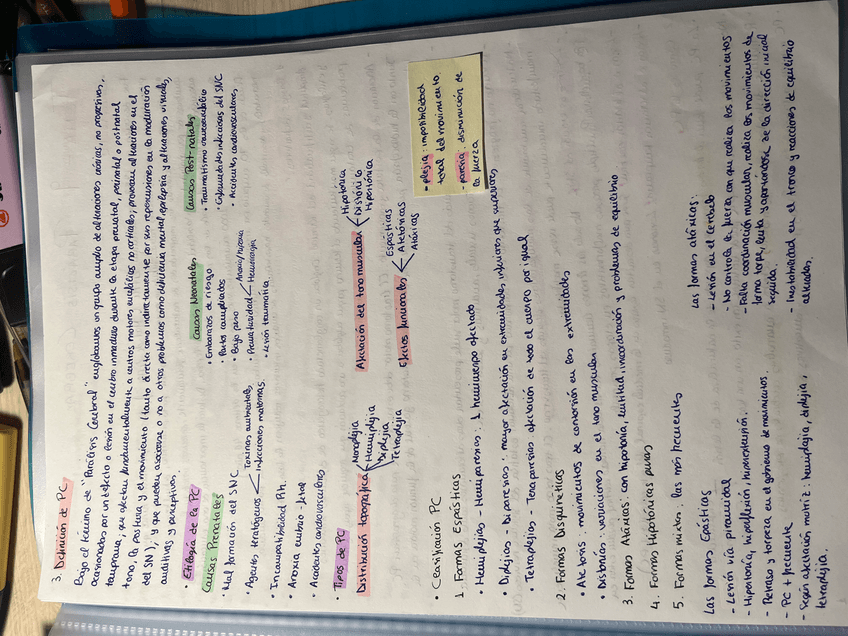 3. Definición de PC.
Bajo el término de "Parálisis Cerebral" englobamos un grupo amplio de alteraciones crónicas, no progresivas,
ocasionadas por un defecto o lesión en el cerebro inmaduro durante la etapa prenatal, perinatal o postnatal
temprana; que afectan fundamentalmente a centros motores encefálicos no corticales; provocan alteraciones en el
tono, la postura y el movimiento (tanto directa como indirectamente por sus repercusiones en la maduración
del SN); y que pueden asociarse o no a otros problemas como deficiencia mental, epilepsia y alteraciones visuales,
auditivas y perceptivas.
• Etiología de la PC
Causas Prenatales
• Mal formación del SNC
• Agentes teratológicos
Toxinas ambientales
Infecciones maternas.
• Incompatibilidad Rh.
• Anoxia
• Accidentes cardiovasculares
Causas Neonatales
• Embarazos de riesgo
• Partos complicados
• Bajo peso
• Prematuridad
Anoxia/hipoxia
Hemorragia
• Lesión traumática
Causas Post-natales
• Traumatismo craneoencefálico
• Enfermedades infecciosas del SNC
• Accidentes cardiovasculares,
Tipos de PC
Distribución topográfica
Monoplejia
Hemiplejia
Diplejia
Tetraplejia
Afectación del tono muscular
Hipotónica
Distónica
Hipertónica
Efectos funcionales
Espásticas
Atetónicas
Atáxicas
• plejia: imposibilidad
total del movimiento
• paresia: disminución de
la fuerza
• Clasificación PC
1. Formas Espásticas
• Hemiplejias - Hemiparesias: 1 hemicuerpo afectado
• Diplejias - Diparesias: mayor afectación en extremidades inferiores que superiores
• Tetraplejias - Tetraparesias afectación de todo el cuerpo por igual
2. Formas Disquinéticas
• Atetosis: movimientos de contorsión en las extremidades
• Distonías: variaciones en el tono muscular
3. Formas Atáxicas: con hipotonía, lentitud, incoordinación y problemas de equilibrio
4. Formas Hipotónicas puras
5. Formas mixtas: las más frecuentes
Las formas Espásticas
- Lesión vía piramidal
- Hipertonía, hiperflexión, hiperextensión.
- Retraso y torpeza en el gobierno de movimientos.
- PC + frecuente
- Según afectación motriz: hemiplejia, diplejia,
tetraplejia.
Las formas atáxicas:
- Lesión en el Cerebelo
- No controla la fuerza con que realiza los movimientos
- Falta coordinación muscular, realiza los movimientos de
forma torpe, lenta y apartándose de la dirección inicial
seguida.
- Inestabilidad en el tronco y reacciones de equilibrio
alteradas.